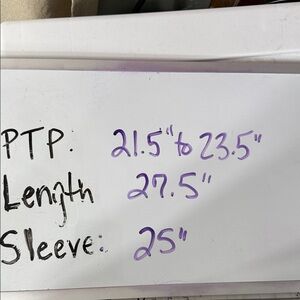 PTP: 21.5" to 23.5"
Length 27.5"
Sleeve: 25"